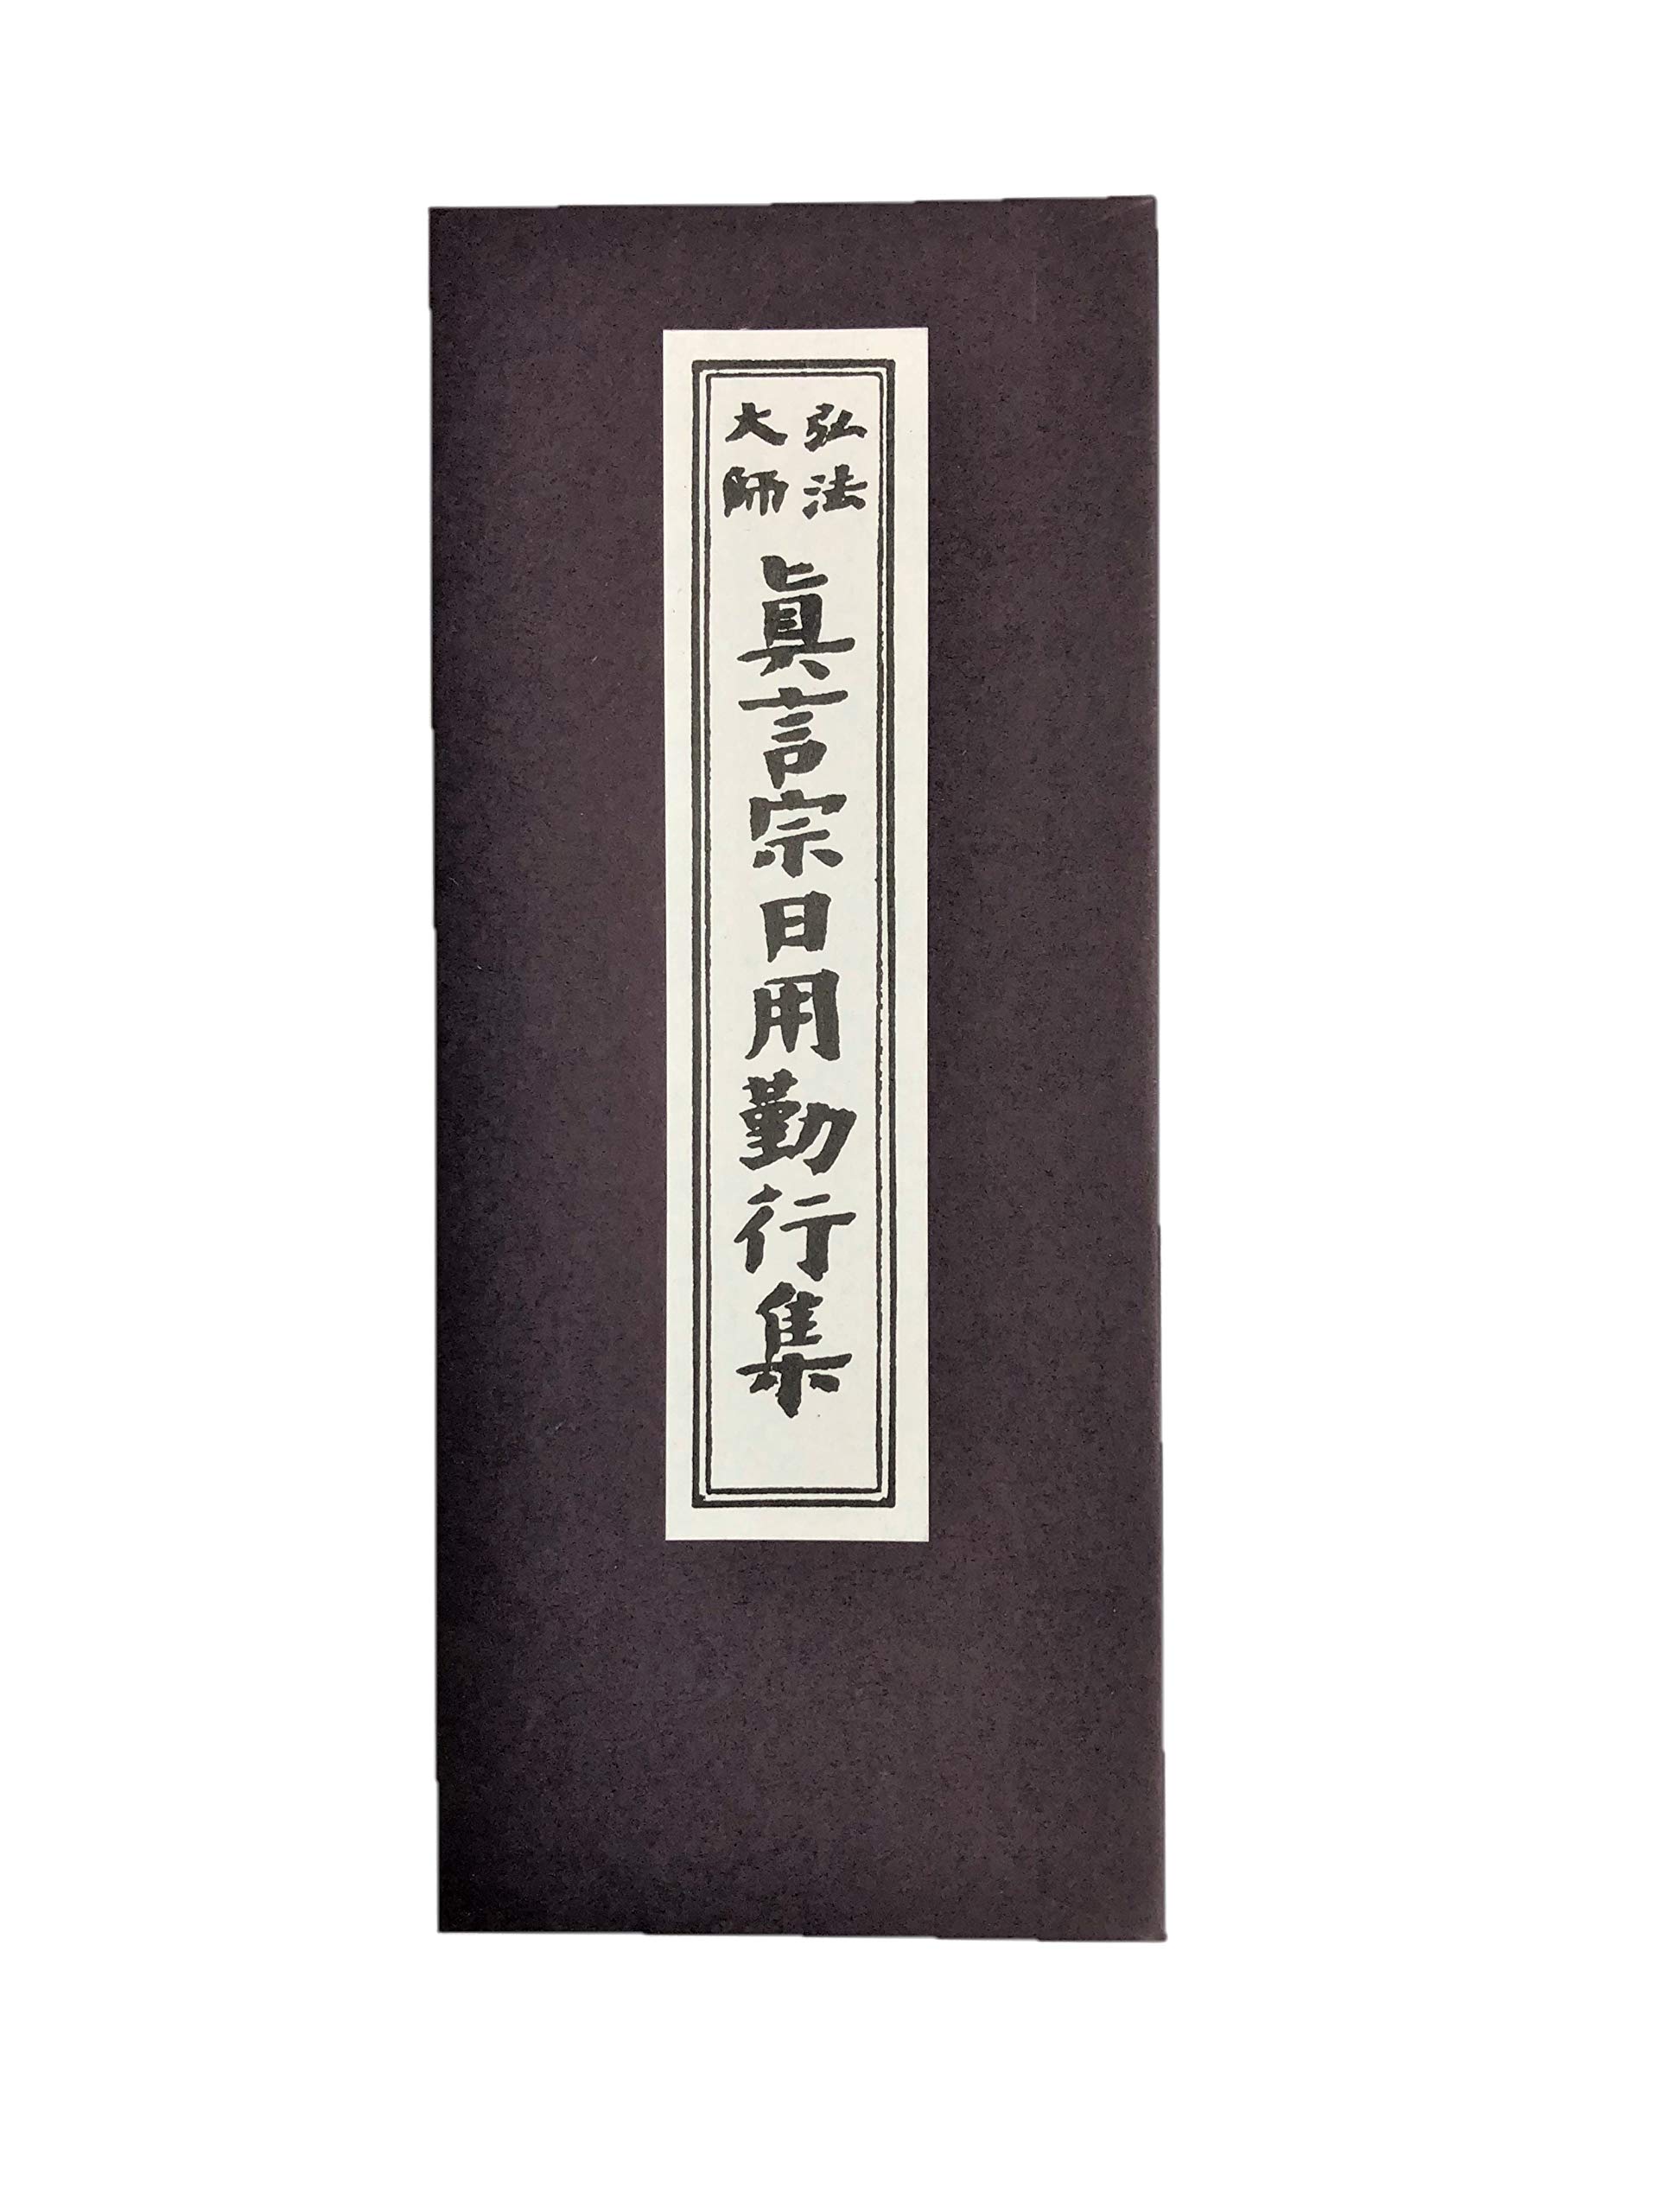 弘法
大師
眞言宗日用勤行集